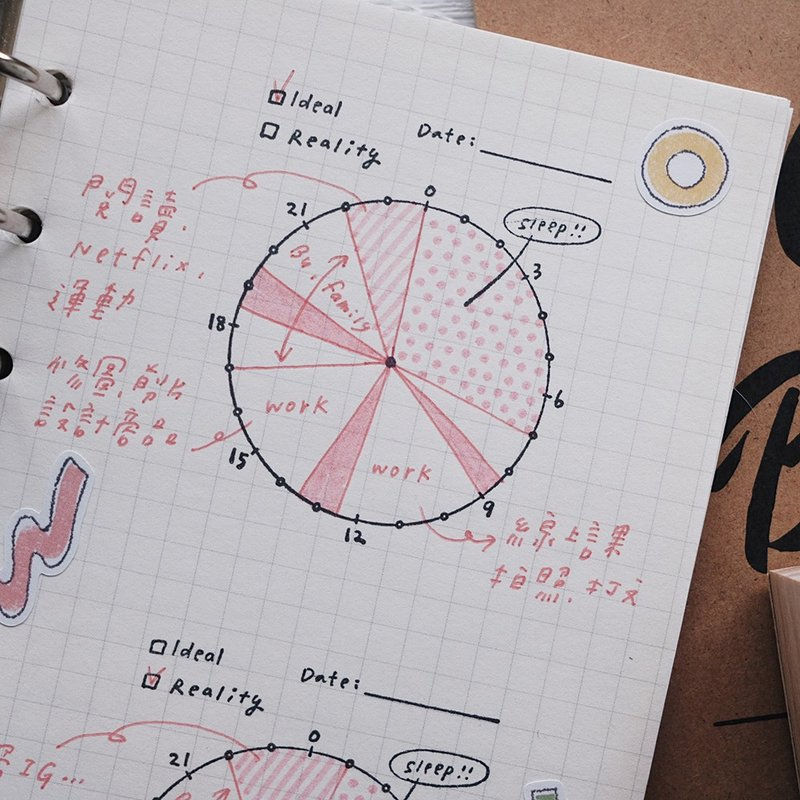 Ideal
Reality
Date:
0
21
sleep!!
3
閱讀.
Netflix.
運動
By. family
18
修圖.剪片
設計商品
work
6
work
15
9
12
線上課
拍照.拉文
Ideal
Reality
Date:
0
21
IG...
sleep!!